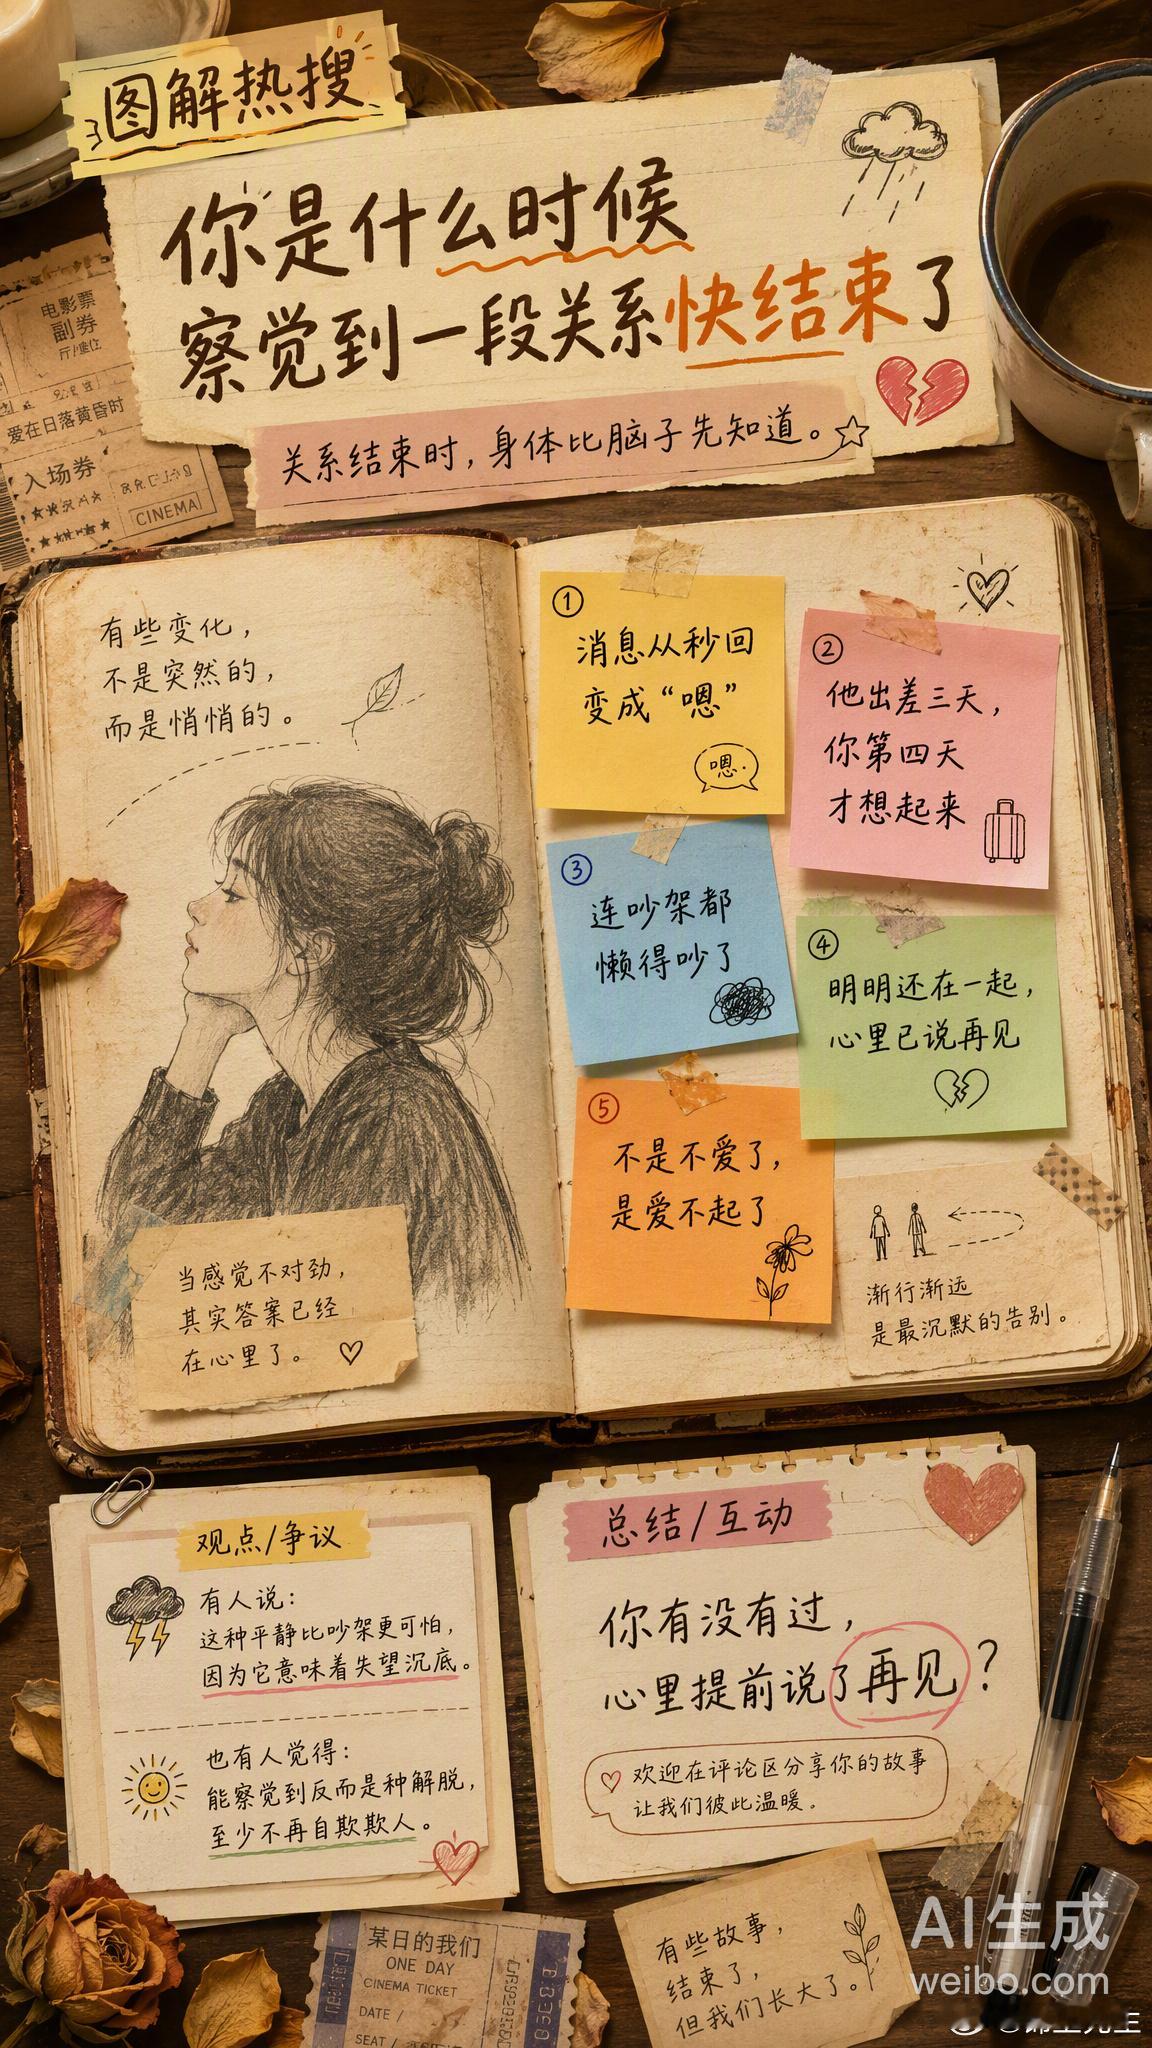 图解热搜
你是什么时候
察觉到一段关系快结束了
关系结束时，身体比脑子先知道。
电影票
副券
爱在日落黄昏时
入场券
CINEMA
有些变化，
不是突然的，
而是悄悄的。
当感觉不对劲，
其实答案已经
在心里了。
①
消息从秒回
变成“嗯”
嗯.
②
他出差三天，
你第四天
才想起来
③
连吵架都
懒得吵了
④
明明还在一起，
心里已说再见
⑤
不是不爱了，
是爱不起了
渐行渐远
是最沉默的告别。
观点/争议
有人说：
这种平静比吵架更可怕，
因为它意味着失望沉底。
也有人觉得：
能察觉到反而是种解脱，
至少不再自欺欺人。
总结/互动
你有没有过，
心里提前说了再见？
欢迎在评论区分享你的故事
让我们彼此温暖。
某日的我们
ONE DAY
CINEMA TICKET
DATE /
SEAT /
有些故事，
结束了，
但我们长大了。
AI生成
weibo.com